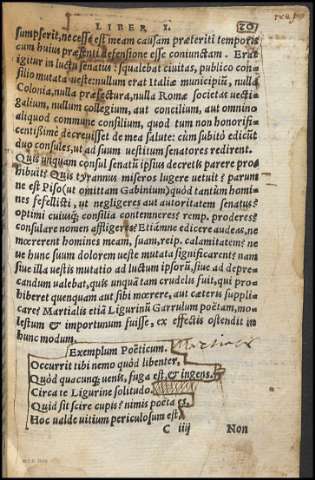 LIBER I. 20
sumpserit, necesse est meam causam præteriti temporis
cum huius præsenti defensione esse coniunctam. Erat
igitur in luctu senatus: squalebat ciuitas, publico con-
silio mutata ueste: nullum erat Italiæ municipiũ, nulla
Colonia, nulla præfectura, nulla Romæ societas uecti-
galium, nullum collegium, aut concilium, aut omnino
aliquod commune consilium, quod tum non honorifi-
centissime decreuisset de mea salute: cùm subitò edicũt
duo consules, ut ad suum uestitum senatores redirent.
Quis unquam consul senatũ ipsius decretis parere pro-
hibuit? Quis tyrannus miseros lugere uetuit? parum
ne est Piso (ut omittam Gabinium) quòd tantũm homi-
nes fefellisti, ut negligeres autoritatem senatus?
optimi cuiusq; consilia contemneres? remp. proderes?
consulare nomen affligeres? Etiãmne edicere audeas, ne
mœrerent homines meam, suam, reip. calamitatem? ne
ue hunc suum dolorem ueste mutata significarent? nam
siue illa uestis mutatio ad luctum ipsorũ, siue ad depre-
candum ualebat, quis unquã tam crudelis fuit, qui pro-
hiberet quenquam aut sibi mœrere, aut cæteris suppli-
care? Martialis etiã Ligurinũ Garrulum poëtam, mo-
lestum & importunum fuisse, ex effectis ostendit in
hunc modum.
Exemplum Poëticum. Martialis
Occurrit tibi nemo quòd libenter,
Quòd quacunq; uenis, fuga est, & ingens
Circa te Ligurine solitudo.
Quid sit scire cupis? nimis poëta es.
Hoc ualde uitium periculosum est,
C iiij Non